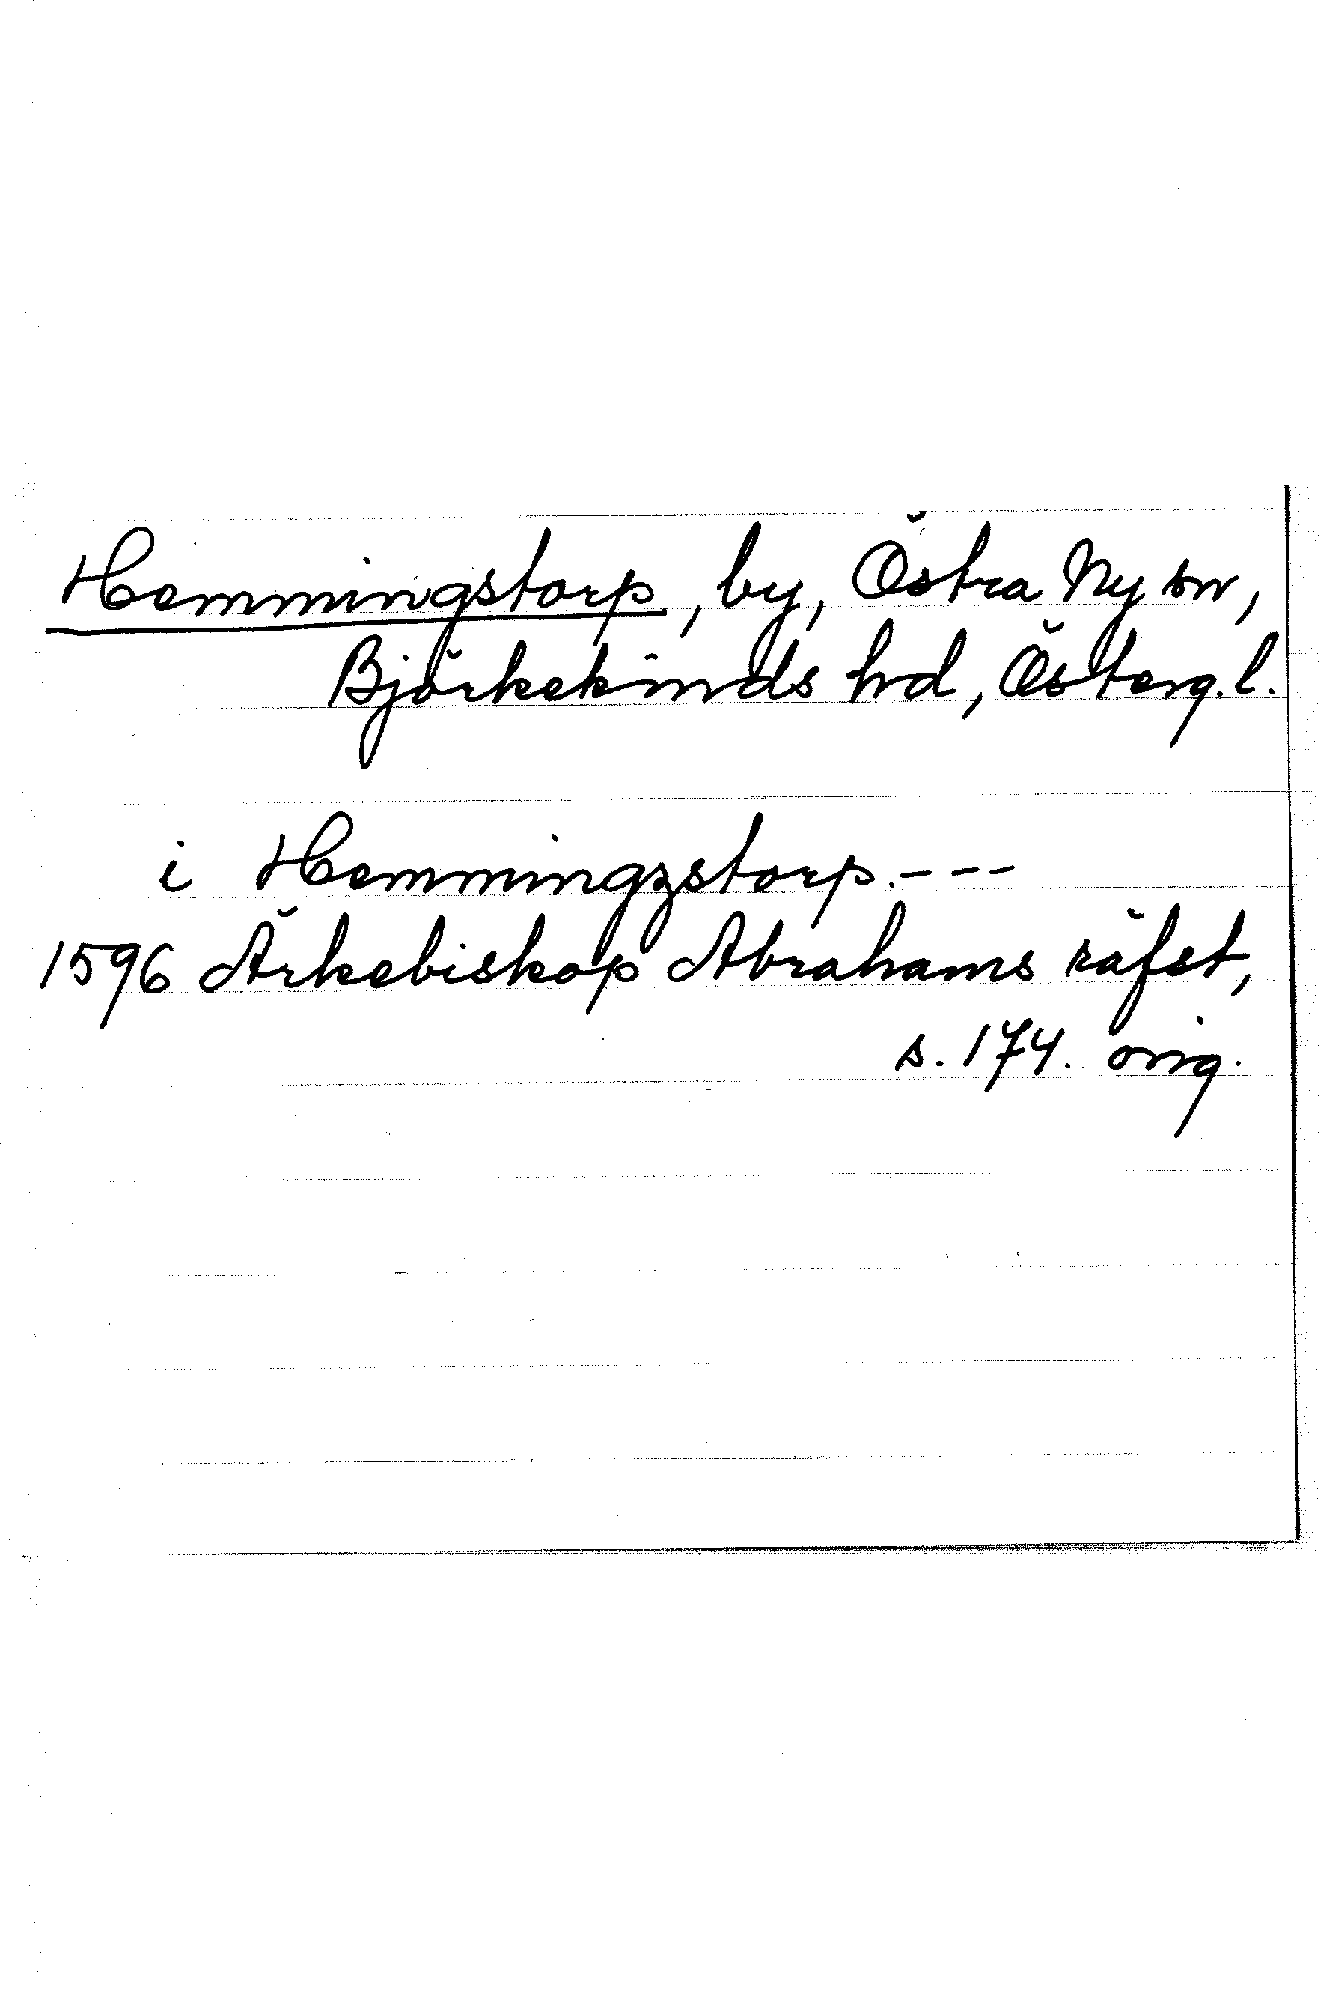 Hemmingstorp, by, Östra Ny sn,
Björkekinds hd, Österg. l.
i Hemmingzstorp. - - -
1596 Ärkebiskop Abrahams räfst,
s. 174. orig.